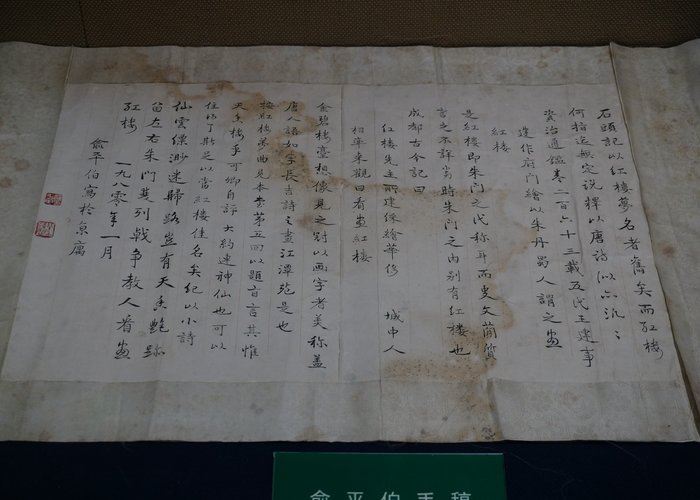 石頭記以紅樓夢名者舊矣而紅樓
何指迄無定説釋以唐詩似亦汎汎
資治通鑑卷二百六十三載五代王建事
建作府門繪以朱丹蜀人謂之畫
紅樓
是紅樓即朱門之代稱耳而史文簡質
言之不詳當時朱門之内别有紅樓也
成都古今記曰
紅樓先主所建綵繪華侈
城中人
相率來觀曰看畫紅樓
金碧樓臺想像見之别以畫字者美稱蓋
唐人語如李長吉詩之畫江潭苑是也
按紅樓夢曲見本書第五回以題旨言其惟
天香樓乎可卿自謚大約連神仙也可以
住得了斯足以當紅樓佳名矣紀以小詩
仙雲縹渺迷歸路豈有天香艷跡
留左右朱門雙列戟争教人看畫
紅樓
一九八〇年一月
俞平伯寫於京寓
俞平伯手稿